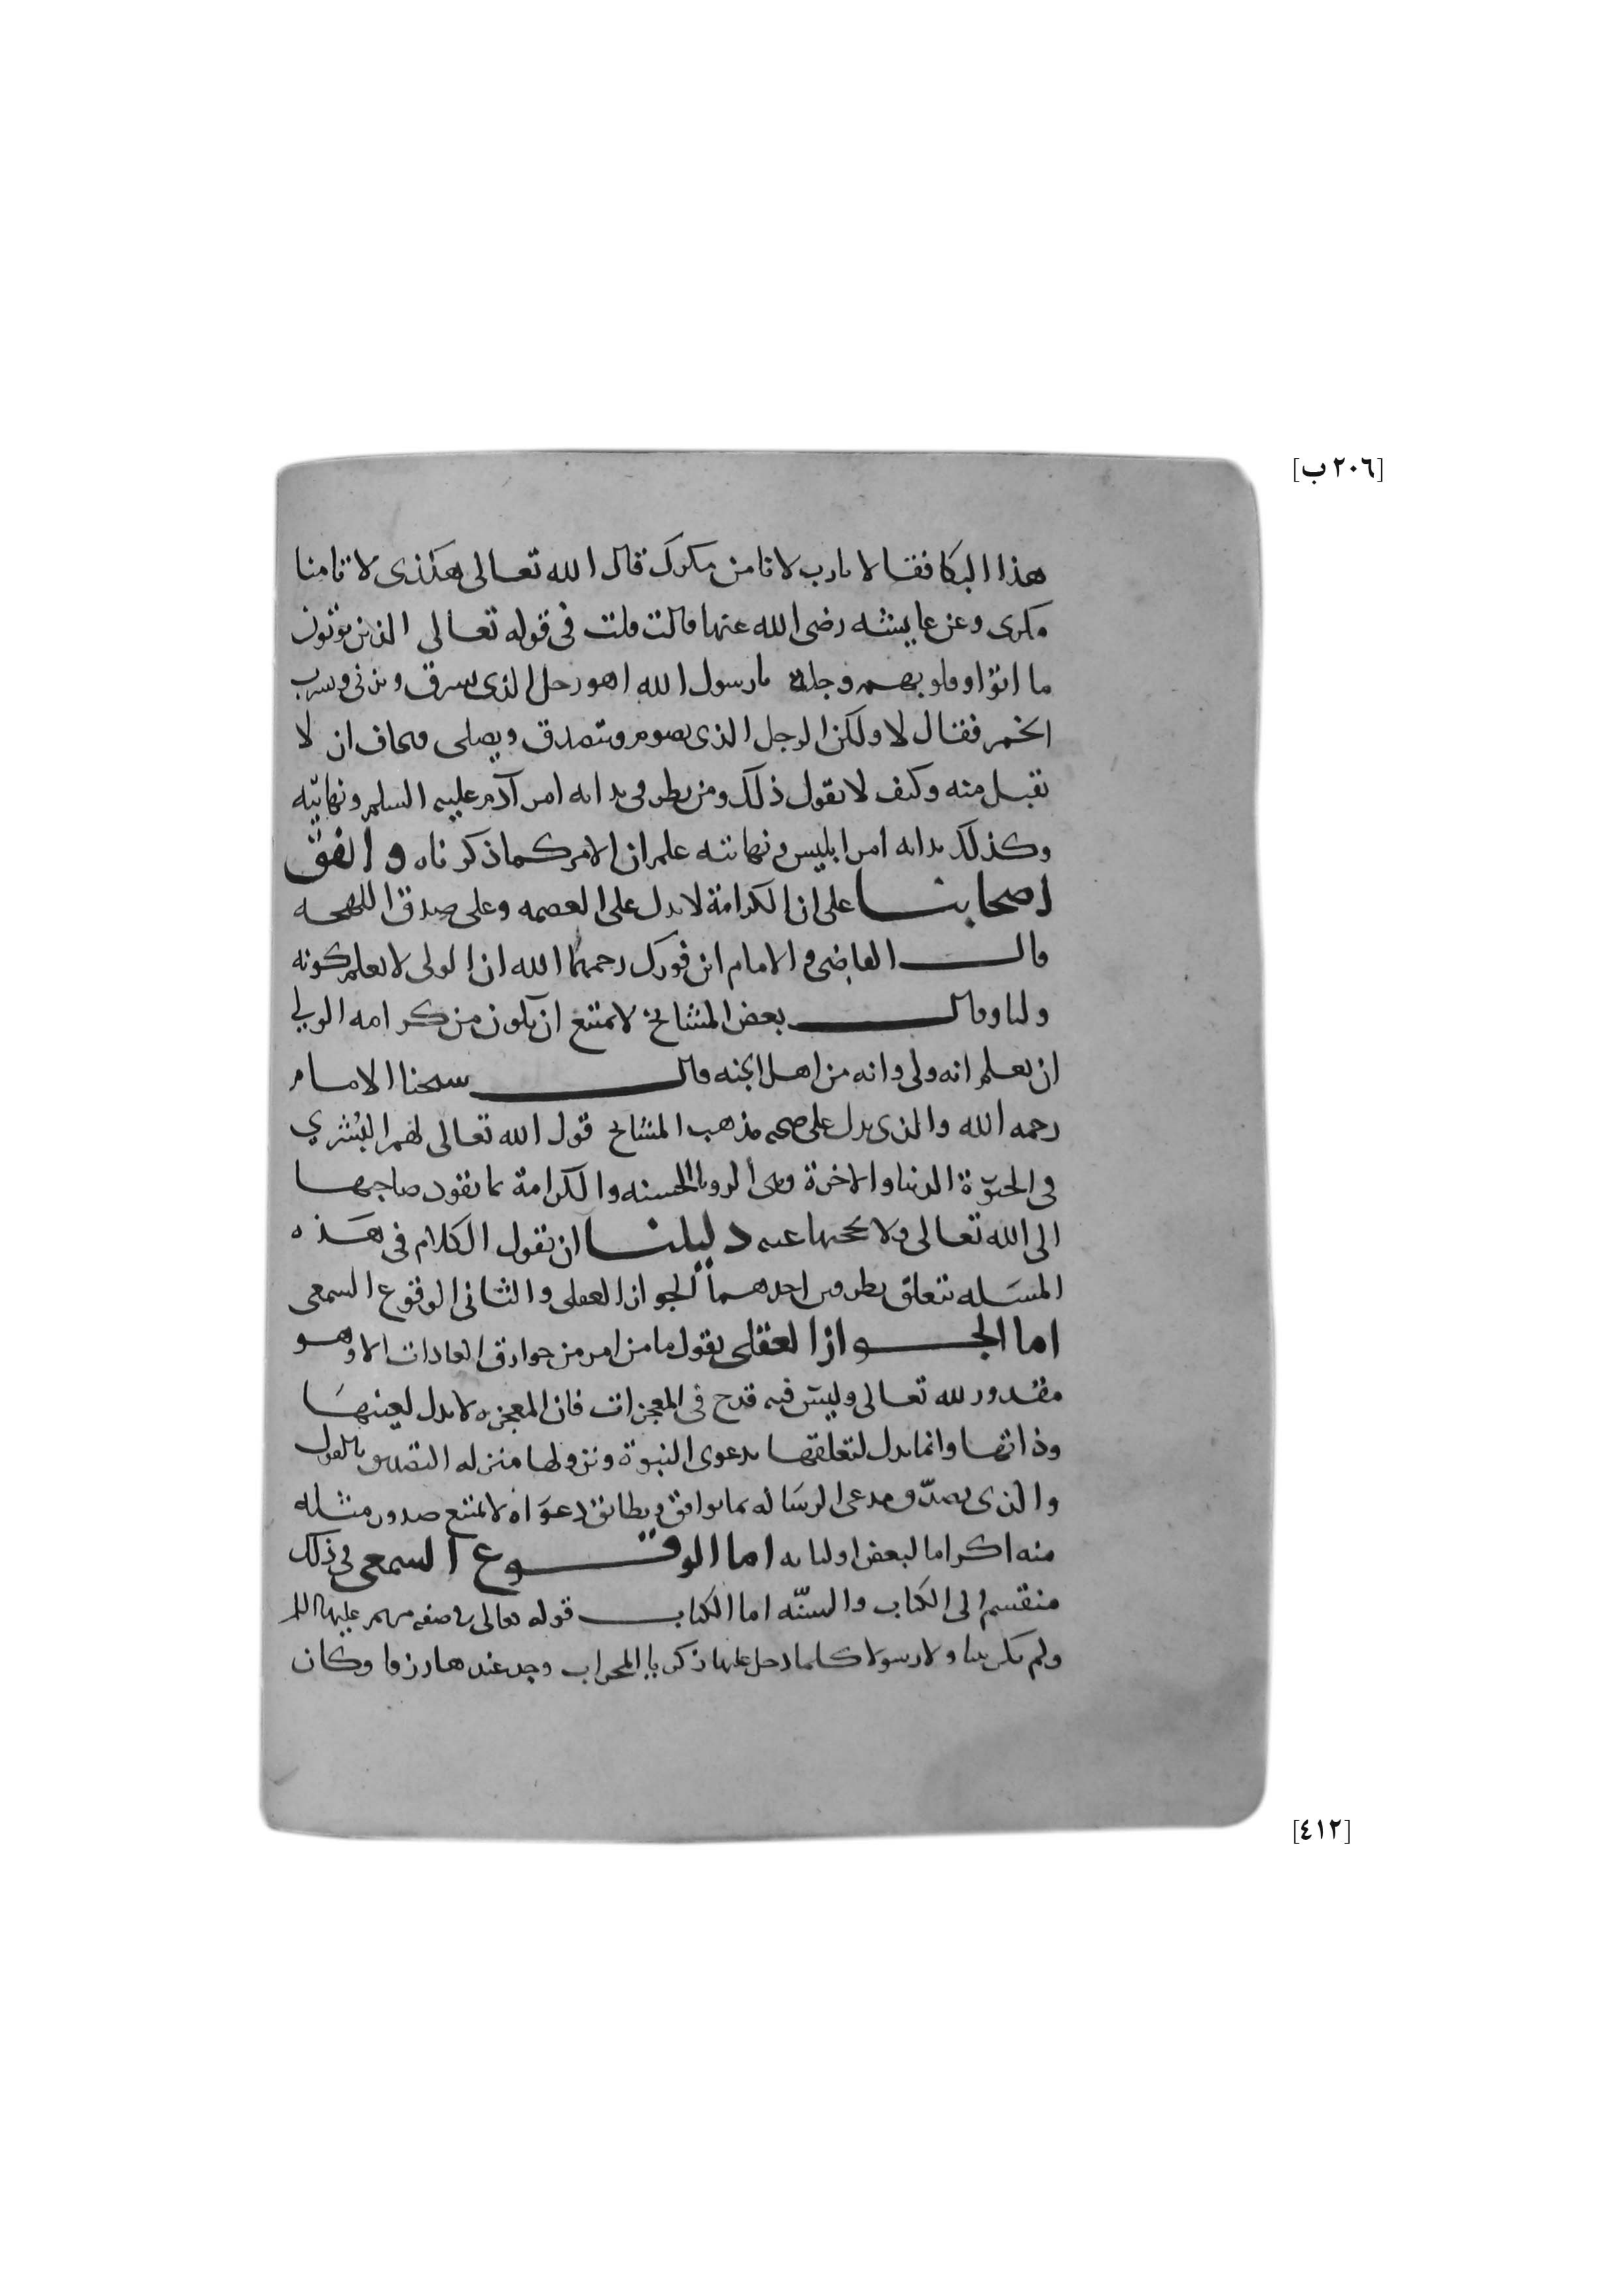 [٢٠٦ ب]
هذا البكا فقالا يارب لا نامن مكرك قال الله تعالى هكذى لا تامنا
مكرى وعن عايشه رضى الله عنها قالت قلت فى قوله تعالى الذين يوتون
ما اتوا وقلوبهم وجلة يا رسول الله اهو رجل الذى يسرق ويزنى ويشرب
الخمر فقال لا ولكن الرجل الذى يصوم ويتصدق ويصلى ويخاف ان لا
تقبل منه وكيف لا نقول ذلك ومن نظر فى بداية امر آدم عليه السلم ونهايته
وكذلك بداية امر ابليس ونهايته علم ان الامر كما ذكرناه واتفق
اصحابنا على ان الكرامة لا تدل على العصمه وعلى صدق اللهجه
قال القاضى والامام ابن فورك رحمهما الله ان الولى لا يعلم كونه
وليا وقال بعض المشايخ لا يمتنع ان يكون من كرامه الولي
ان يعلم انه ولى وانه من اهل الجنه قال شيخنا الامام
رحمه الله والذى يدل على صحه مذهب المشايخ قول الله تعالى لهم البُشري
فى الحيوة الدنيا والاخرة وهى الرويا الحسنه والكرامة مما تقود صاحبها
الى الله تعالى ولا تحجبها عنه دليلنا ان نقول الكلام فى هذه
المسَله تتعلق بطرفين احدهما الجواز العقلى والثانى الوقوع السمعى
اما الجواز العقلى نقول ما من امر من خوارق العادات الا وهو
مقدور لله تعالى وليسَ فيه قدح فى المعجزات فان المعجزه لا تدل لعينهَا
وذاتها وانما تدل لتعلقها بدعوى النبوة ونزولها منزله التصديق بالقول
والذى يصدّق مدعى الرسَاله بما يوافق ويطابق دعوَاه لا يمتنع صدور مثله
منه اكراما لبعض اوليايه اما الوقوع السمعى فى ذلك
منقسم الى الكتاب والسنّه اما الكتاب قوله تعالى فى صفه مريم عليها
ولم تكن نبيا ولا رسولا كلما دخل عليها زكريا المحراب وجد عندها رزقا وكان
[٤١٢]